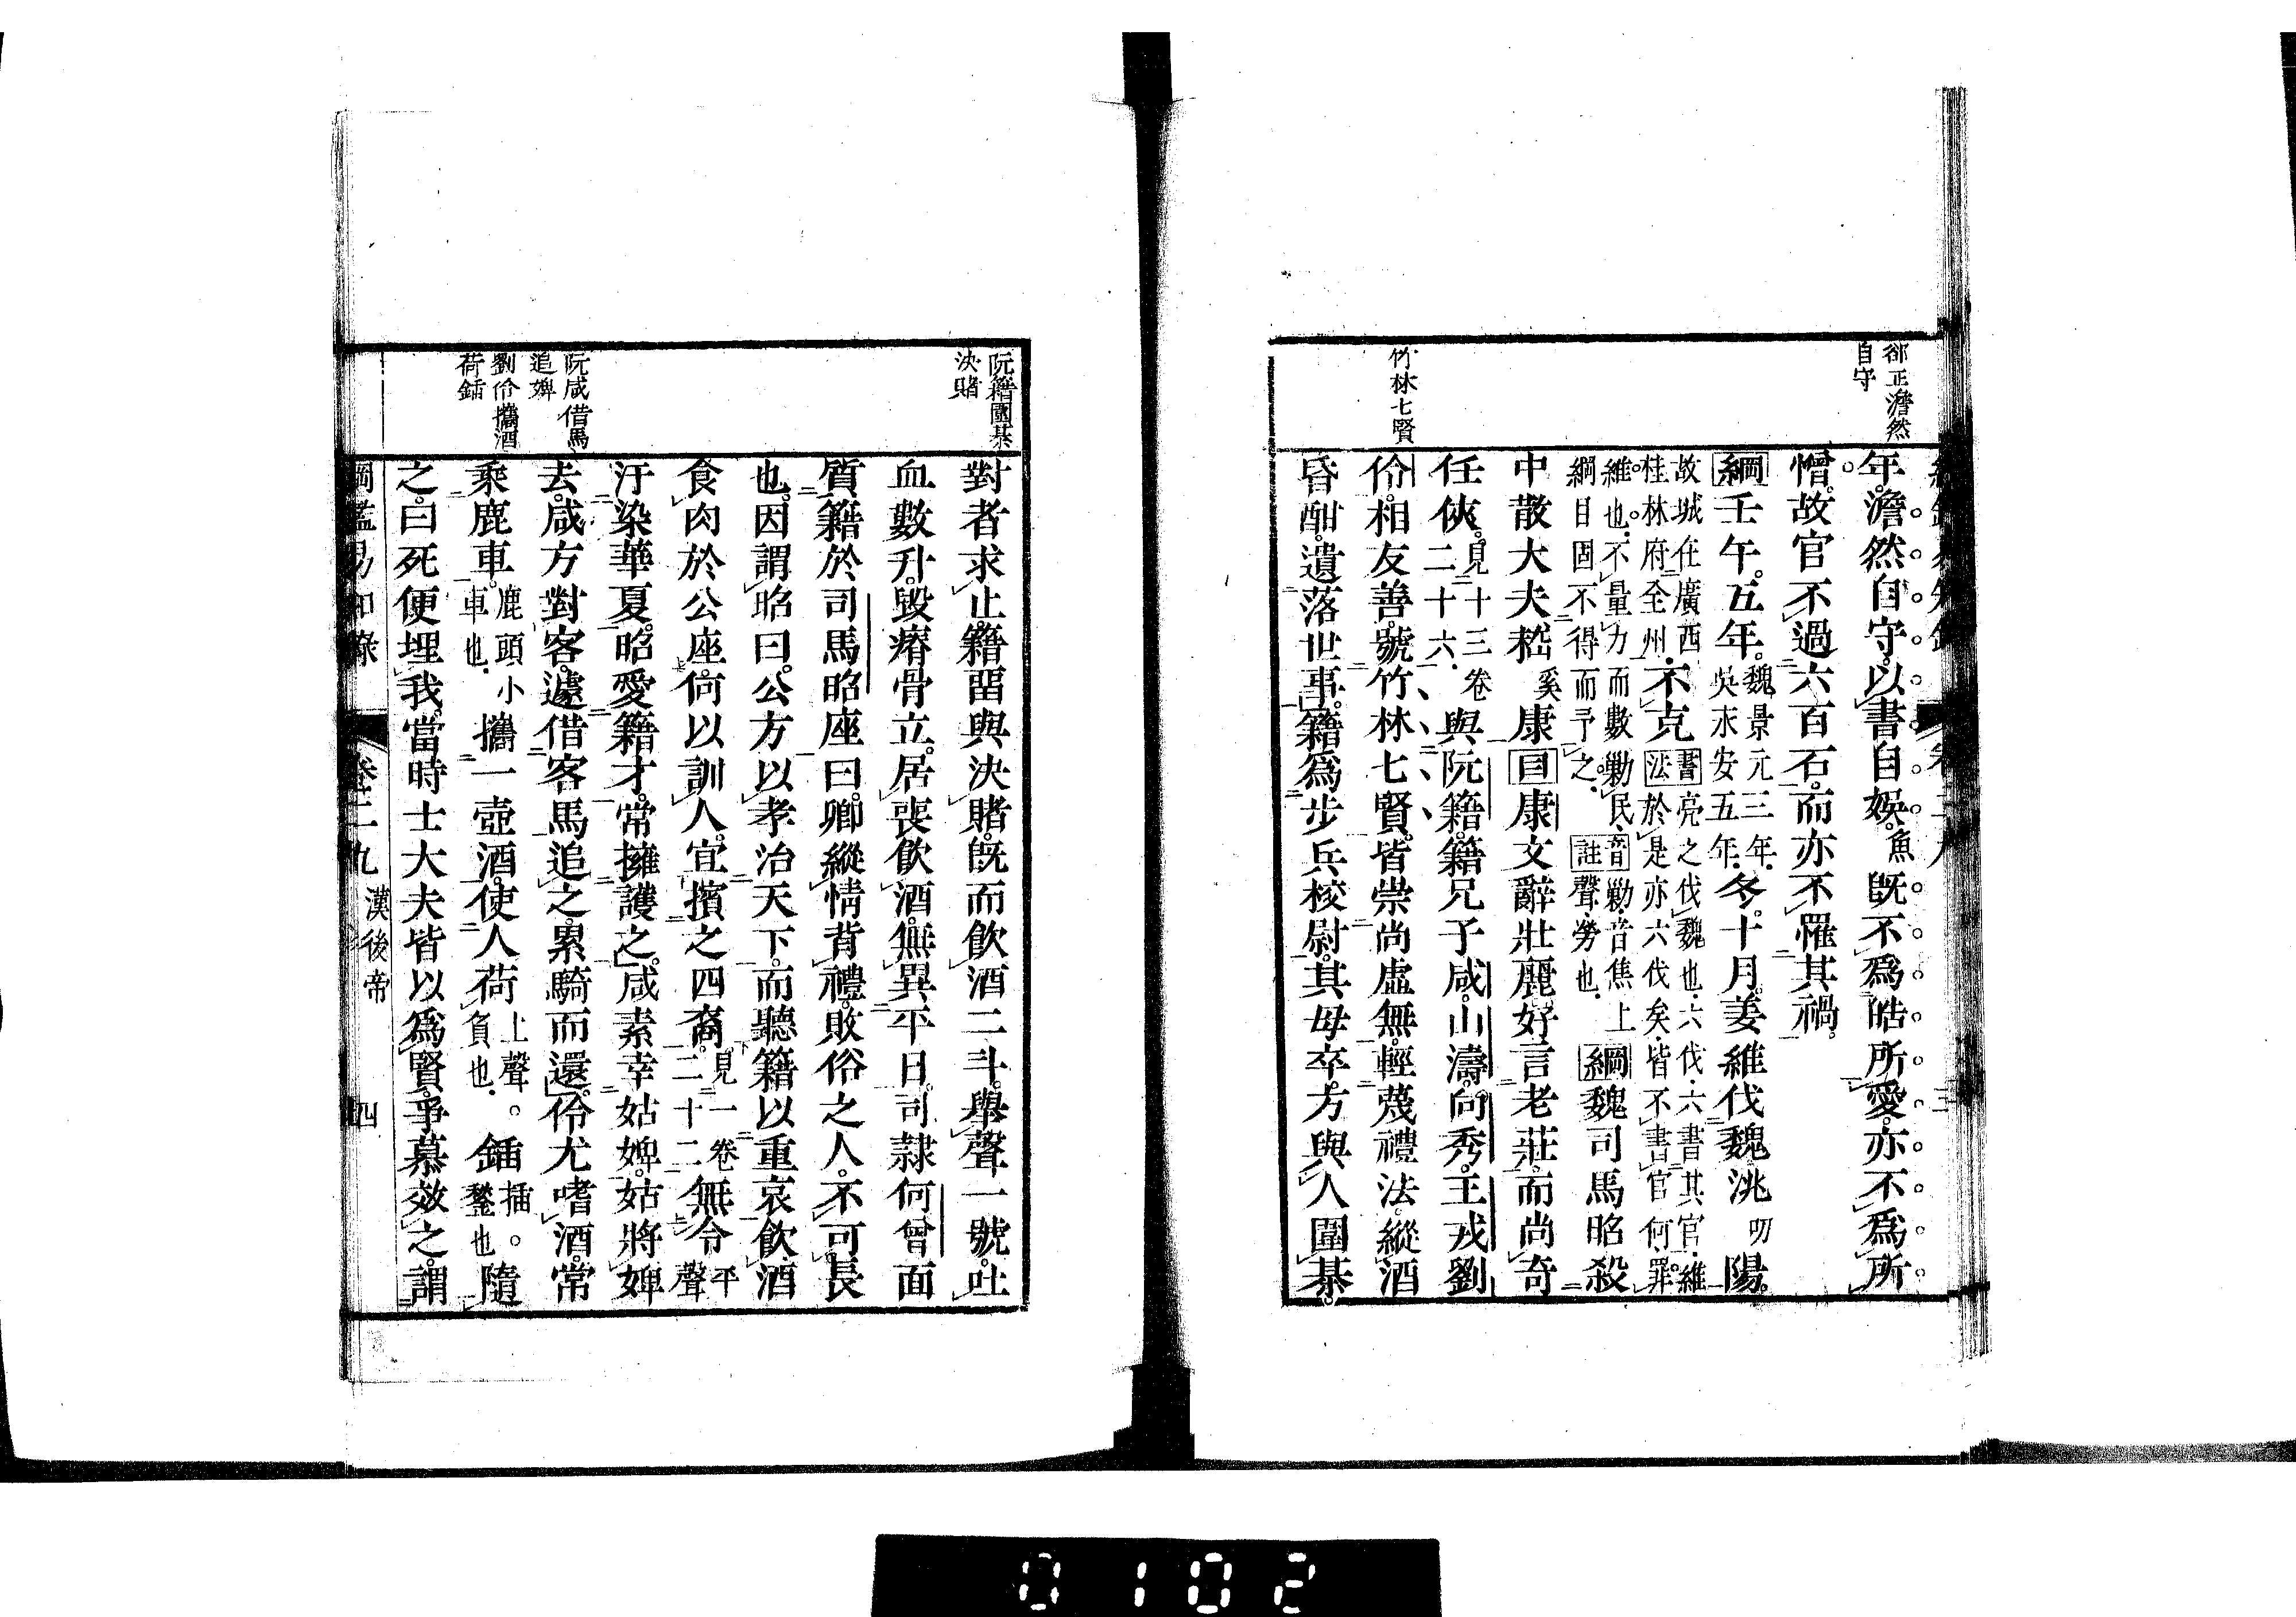 郤正澹然
自守
竹林七賢
年。澹然自守。以書自娛。魚既不爲皓所愛。亦不爲所
憎。故官不過六百石。而亦不罹其禍。
綱壬午。五年。魏景元三年。吳永安五年。冬。十月。姜維伐魏洮叨陽。
故城在廣西桂林府全州。不克書法亮之伐魏也。六伐。六書其官。維於是亦六伐矣。皆不書官。何。罪
維也。不量力而數勦民。綱目固不得而予之。音註勦。音焦上聲。勞也。綱魏司馬昭殺
中散大夫嵇奚康目康文辭壯麗。好言老莊。而尚奇
任俠。見十三卷二十六。與阮籍。籍兄子咸。山濤。向秀。王戎。劉
伶。相友善。號竹林七賢。皆崇尚虛無。輕蔑禮法。縱酒
昏酣。遺落世事。籍爲步兵校尉。其母卒。方與人圍棊。
阮籍圍棊
決賭
阮咸借馬
追婢
劉伶攜酒
荷鍤
對者求止。籍留與決賭。既而飮酒二斗。舉聲一號。吐
血數升。毀瘠骨立。居喪飮酒。無異平日。司隸何曾面
質籍於司馬昭座曰。卿縱情背禮。敗俗之人。不可長
也。因謂昭曰。公方以孝治天下。而聽籍以重哀飮酒
食肉於公座。何以訓人。宜擯之四裔。見一卷二十二無令平聲
汙染華夏。昭愛籍才。常擁護之。咸素幸姑婢。姑將婢
去。咸方對客。遽借客馬追之。累騎而還。伶尤嗜酒。常
乘鹿車。鹿頭小車也。攜一壺酒。使人荷上聲。負也。鍤插。鍫也隨
之。曰死便埋我。當時士大夫皆以爲賢。爭慕效之。謂
綱鑑易知錄 卷二九 漢後帝 四
0102